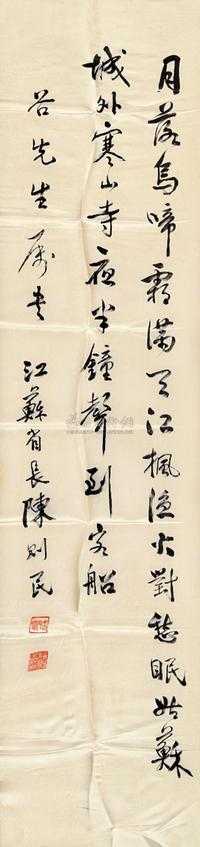 月落烏啼霜滿天江楓漁火對愁眠姑蘇
城外寒山寺夜半鐘聲到客船
谷先生属书
江蘇省長陳則民